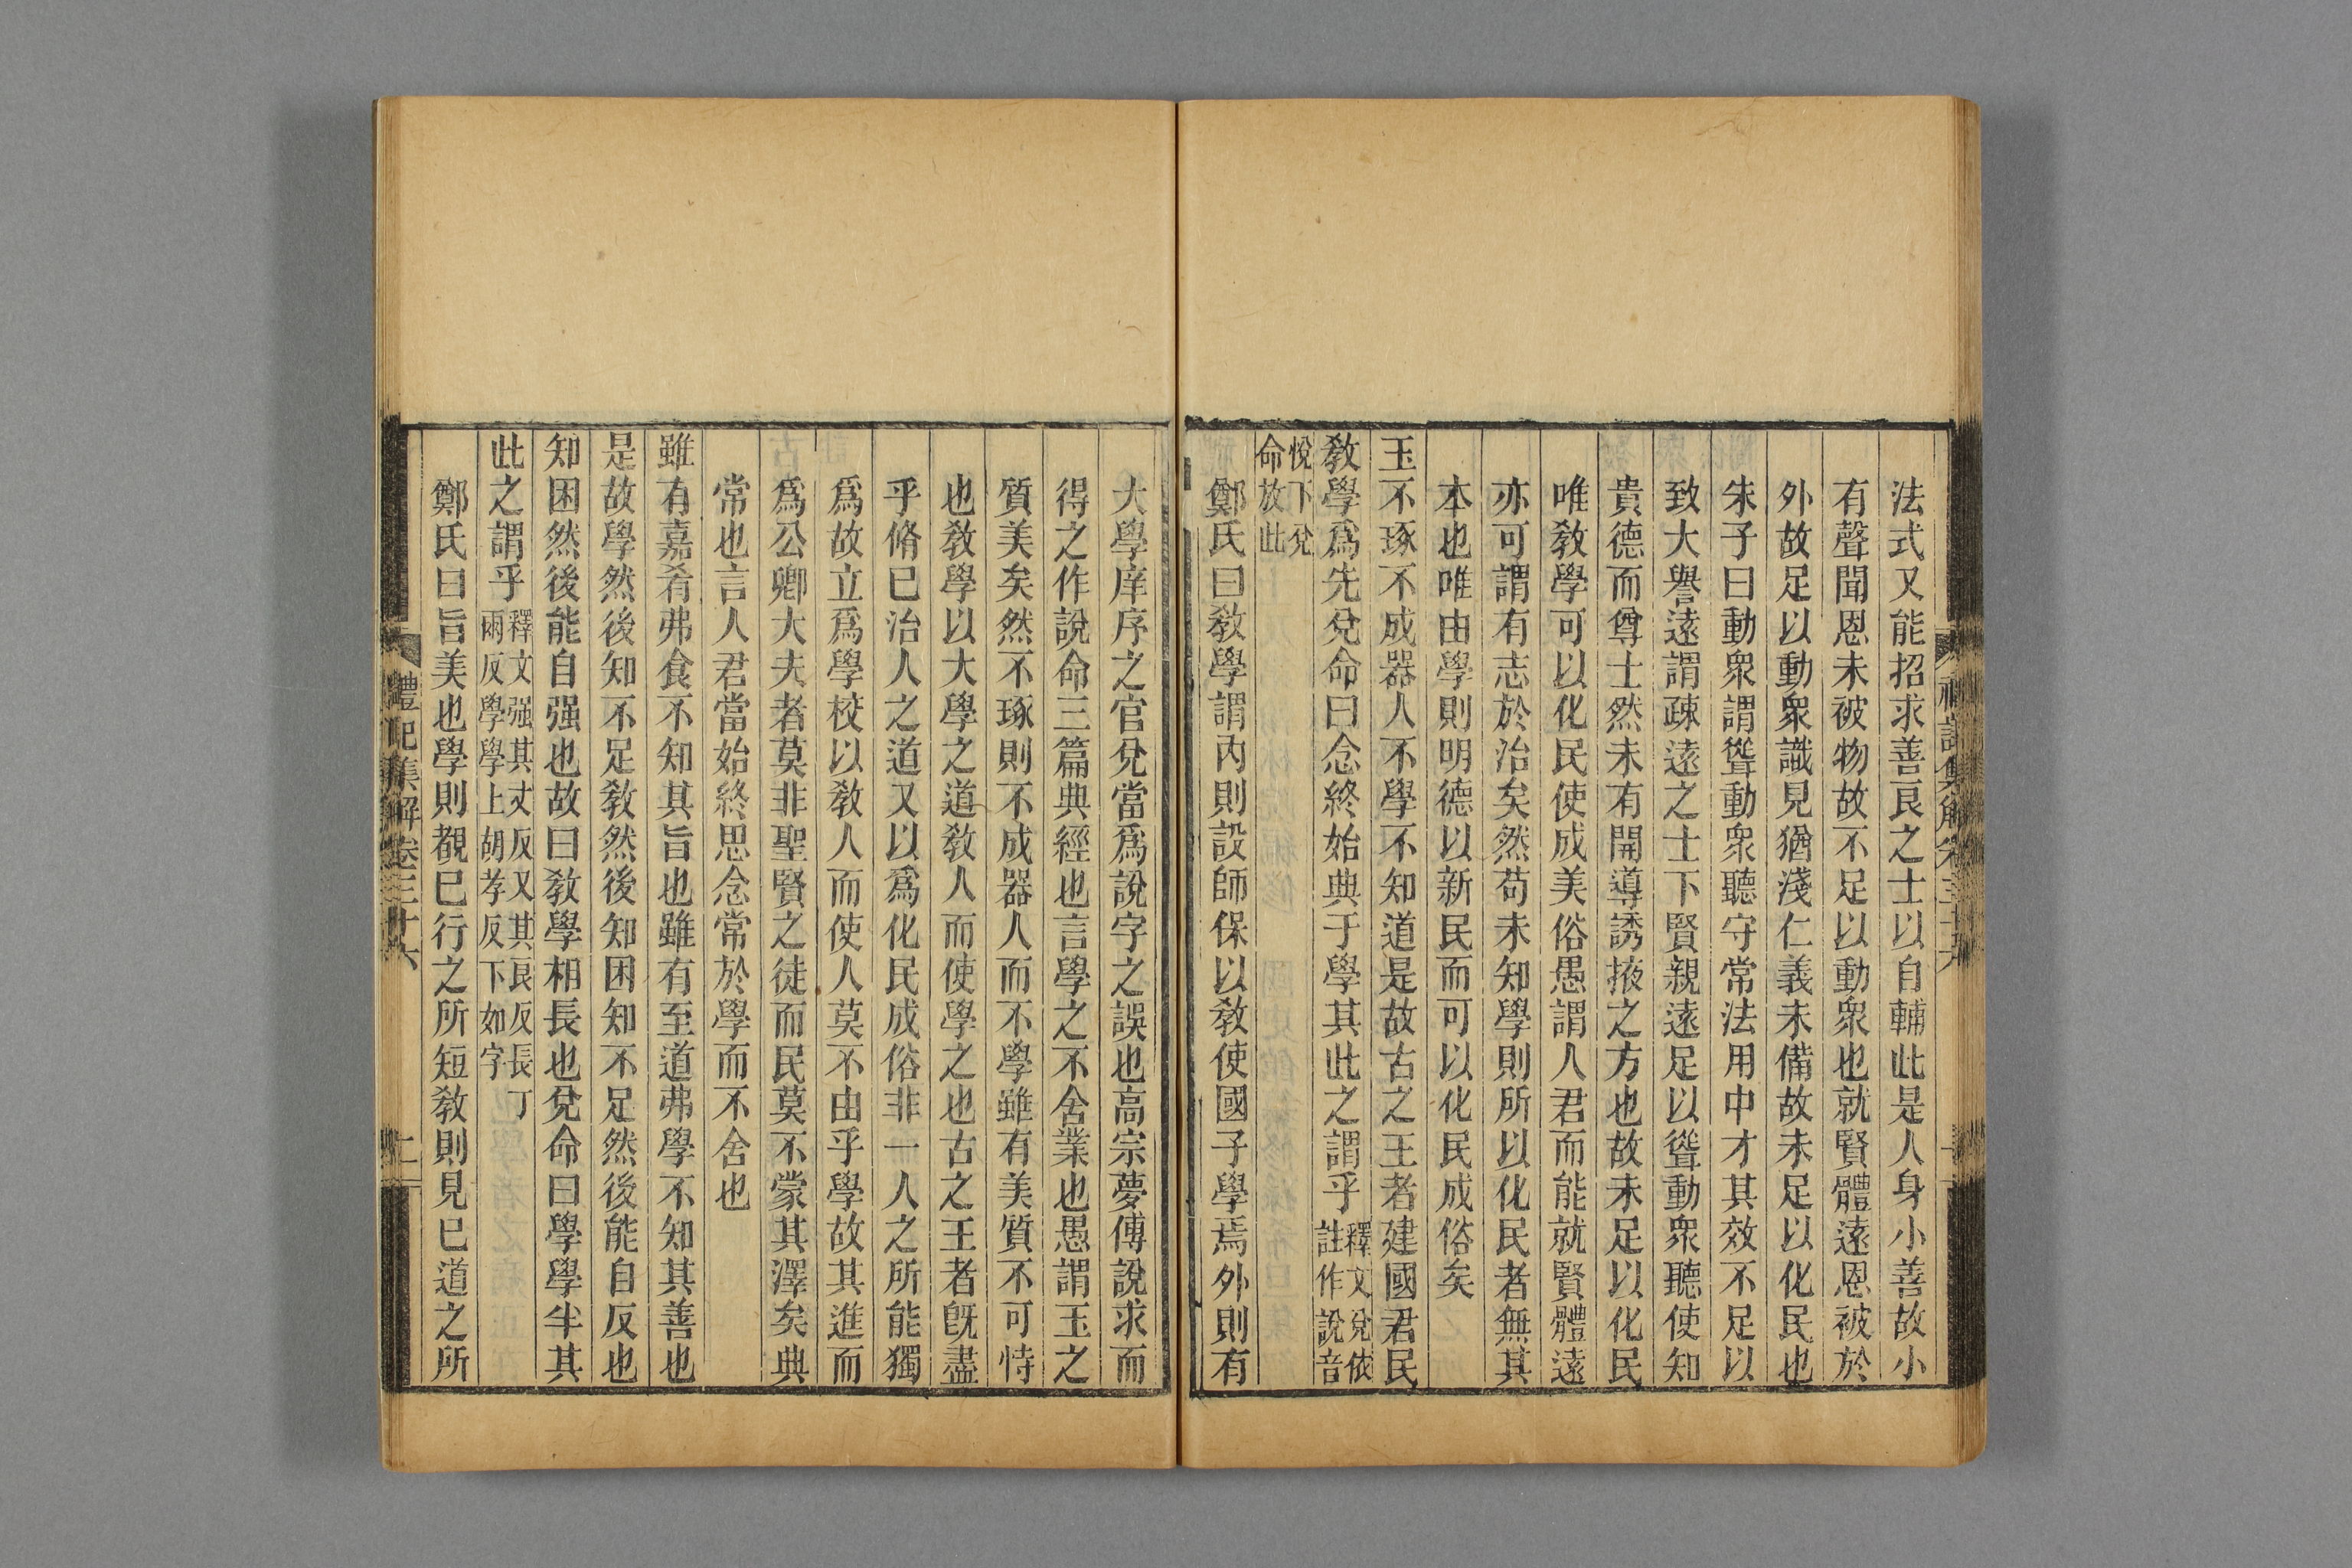 法式又能招求善良之士以自輔此是人身小善故小
有聲聞恩未被物故不足以動衆也就賢體遠恩被於
外故足以動衆識見猶淺仁義未備故未足以化民也
朱子曰動衆謂聳動衆聽守常法用中才其效不足以
致大譽遠謂疎遠之士下賢親遠足以聳動衆聽使知
貴德而尊士然未有開導誘掖之方也故未足以化民
唯敎學可以化民使成美俗愚謂人君而能就賢體遠
亦可謂有志於治矣然苟未知學則所以化民者無其
本也唯由學則明德以新民而可以化民成俗矣
玉不琢不成器人不學不知道是故古之王者建國君民
敎學爲先兌命曰念終始典于學其此之謂乎釋文兌依註作說音
悅下兌命放此
鄭氏曰敎學謂內則設師保以敎使國子學焉外則有
大學庠序之官兌當爲說字之誤也高宗夢傅說求而
得之作說命三篇典經也言學之不舍業也愚謂玉之
質美矣然不琢則不成器人而不學雖有美質不可恃
也敎學以大學之道敎人而使學之也古之王者旣盡
乎脩已治人之道又以爲化民成俗非一人之所能獨
爲故立爲學校以敎人而使人莫不由乎學故其進而
爲公卿大夫者莫非聖賢之徒而民莫不蒙其澤矣典
常也言人君當始終思念常於學而不舍也
雖有嘉肴弗食不知其旨也雖有至道弗學不知其善也
是故學然後知不足敎然後知困知不足然後能自反也
知困然後能自强也故曰敎學相長也兌命曰學學半其
此之謂乎釋文强其丈反又其良反長丁兩反學學上胡孝反下如字
鄭氏曰旨美也學則覩已行之所短敎則見已道之所
禮記集解卷三十六